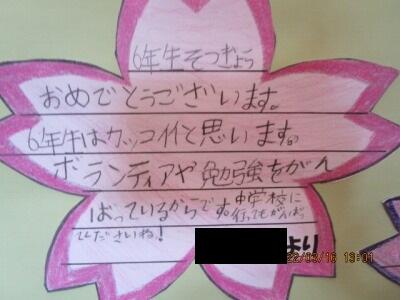 6年生そつぎょう
おめでとうございます。
6年生はカッコイイと思います。
ボランティアや勉強をがん
ばっているからです。中学校に
行ってもがんばっ
てくださいね!
より
22/03/16 13:01